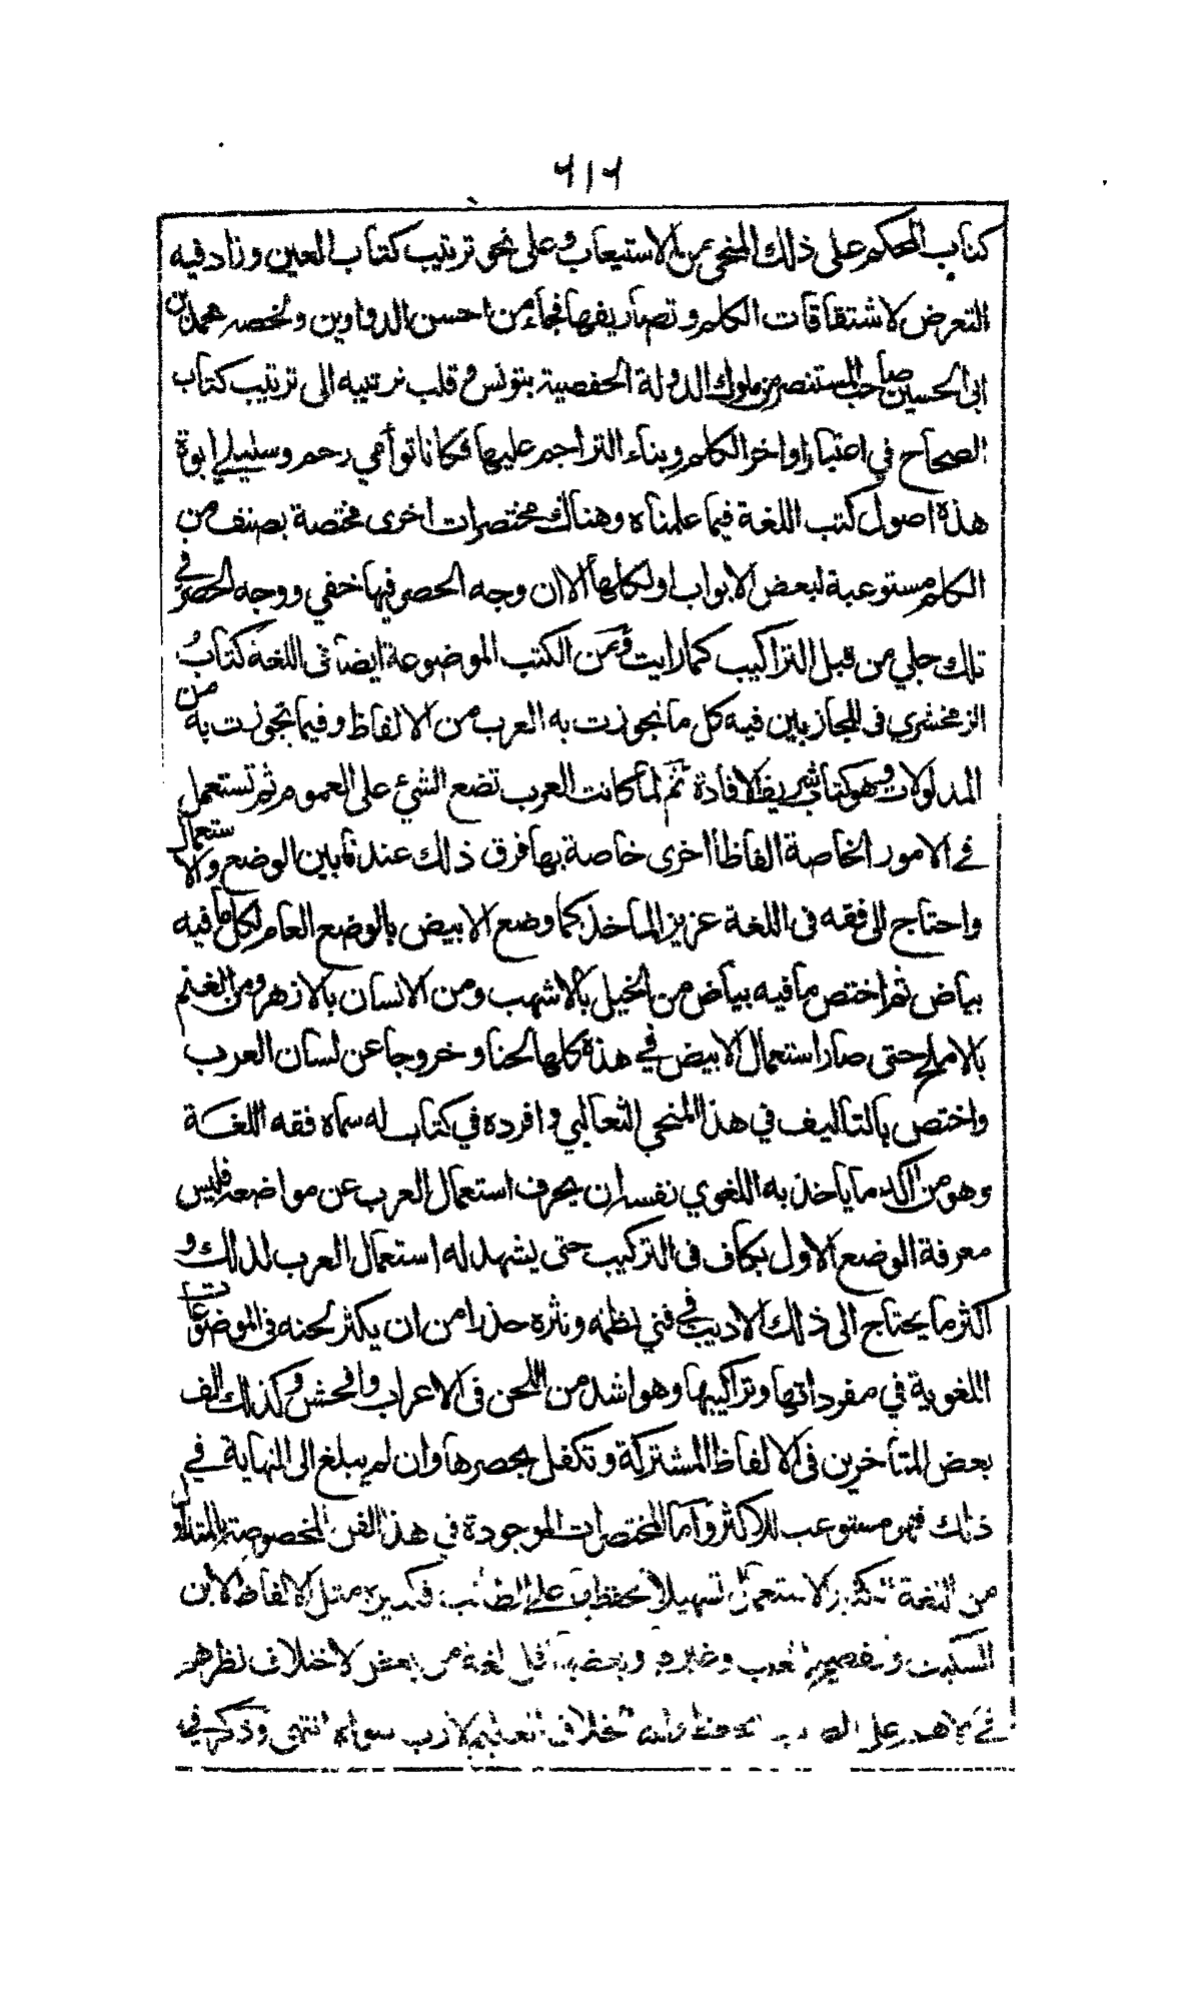 ٦١٦
كتاب المحكم على ذلك المنحى من الاستيعاب وعلى نحو ترتيب كتاب العين وزاد فيه
التعرض لاشتقاقات الكلم وتصاريفها فجاء من احسن الدواوين ولخصه محمد بن
ابى الحسين صاحب المستنصر من ملوك الدولة الحفصية بتونس وقلب ترتيبه الى ترتيب كتاب
الصحاح في اعتبار اواخر الكلم وبناء التراجم عليها فكانا توأمي رحم وسليلي ابوة
هذه اصول كتب اللغة فيما علمناه وهناك مختصرات اخرى مختصة بصنف من
الكلم مستوعبة لبعض الابواب او لكلها الا ان وجه الحصر فيها خفي ووجه الحصر في
تلك جلي من قبل التراكيب كما رايت ومن الكتب الموضوعة ايضا فى اللغة كتاب
الزمخشري فى المجاز بين فيه كل ما تجوزت به العرب من الالفاظ وفيما تجوزت به من
المدلولات وهو كتاب شريف الافادة ثم لما كانت العرب تضع الشئ على العموم ثم تستعمل
فى الامور الخاصة الفاظا اخرى خاصة بها فرق ذلك عندنا بين الوضع والاستعمال
واحتاج الى فقه فى اللغة عزيز الماخذ كما وضع الابيض بالوضع العام لكل ما فيه
بياض ثم اختص ما فيه بياض من الخيل بالاشهب ومن الانسان بالازهر ومن الغنم
بالاملح حتى صار استعمال الابيض في هذه كلها لحنا وخروجا عن لسان العرب
واختص بالتاليف في هذا المنحى الثعالبي وافرده في كتاب له سماه فقه اللغة
وهو من اكد ما ياخذ به اللغوي نفسه ان يحرف استعمال العرب عن مواضعه فليس
معرفة الوضع الاول بكاف فى التركيب حتى يشهد له استعمال العرب لذلك و
اكثر ما يحتاج الى ذلك الاديب في فني نظمه ونثره حذرا من ان يكثر لحنه فى الموضوعات
اللغوية في مفرداتها وتراكيبها وهو اشد من اللحن فى الاعراب وافحش وكذلك الف
بعض المتاخرين فى الالفاظ المشتركة وتكفل بحصرها وان لم يبلغ الى النهاية في
ذلك فهو مستوعب للاكثر واما المختصرات الموجودة في هذا الفن المخصوصة بالمتداول
من اللغة الكثير الاستعمال تسهيلا لحفظها على الطالب فكثيرة مثل الالفاظ لابن
السكيت والفصيح لثعلب وغيرهما وبعضها اقل لغة من بعض لاختلاف نظرهم
في الاهم على الطالب للحفظ والله الخلاق العليم لا رب سواه انتهى وذكر في